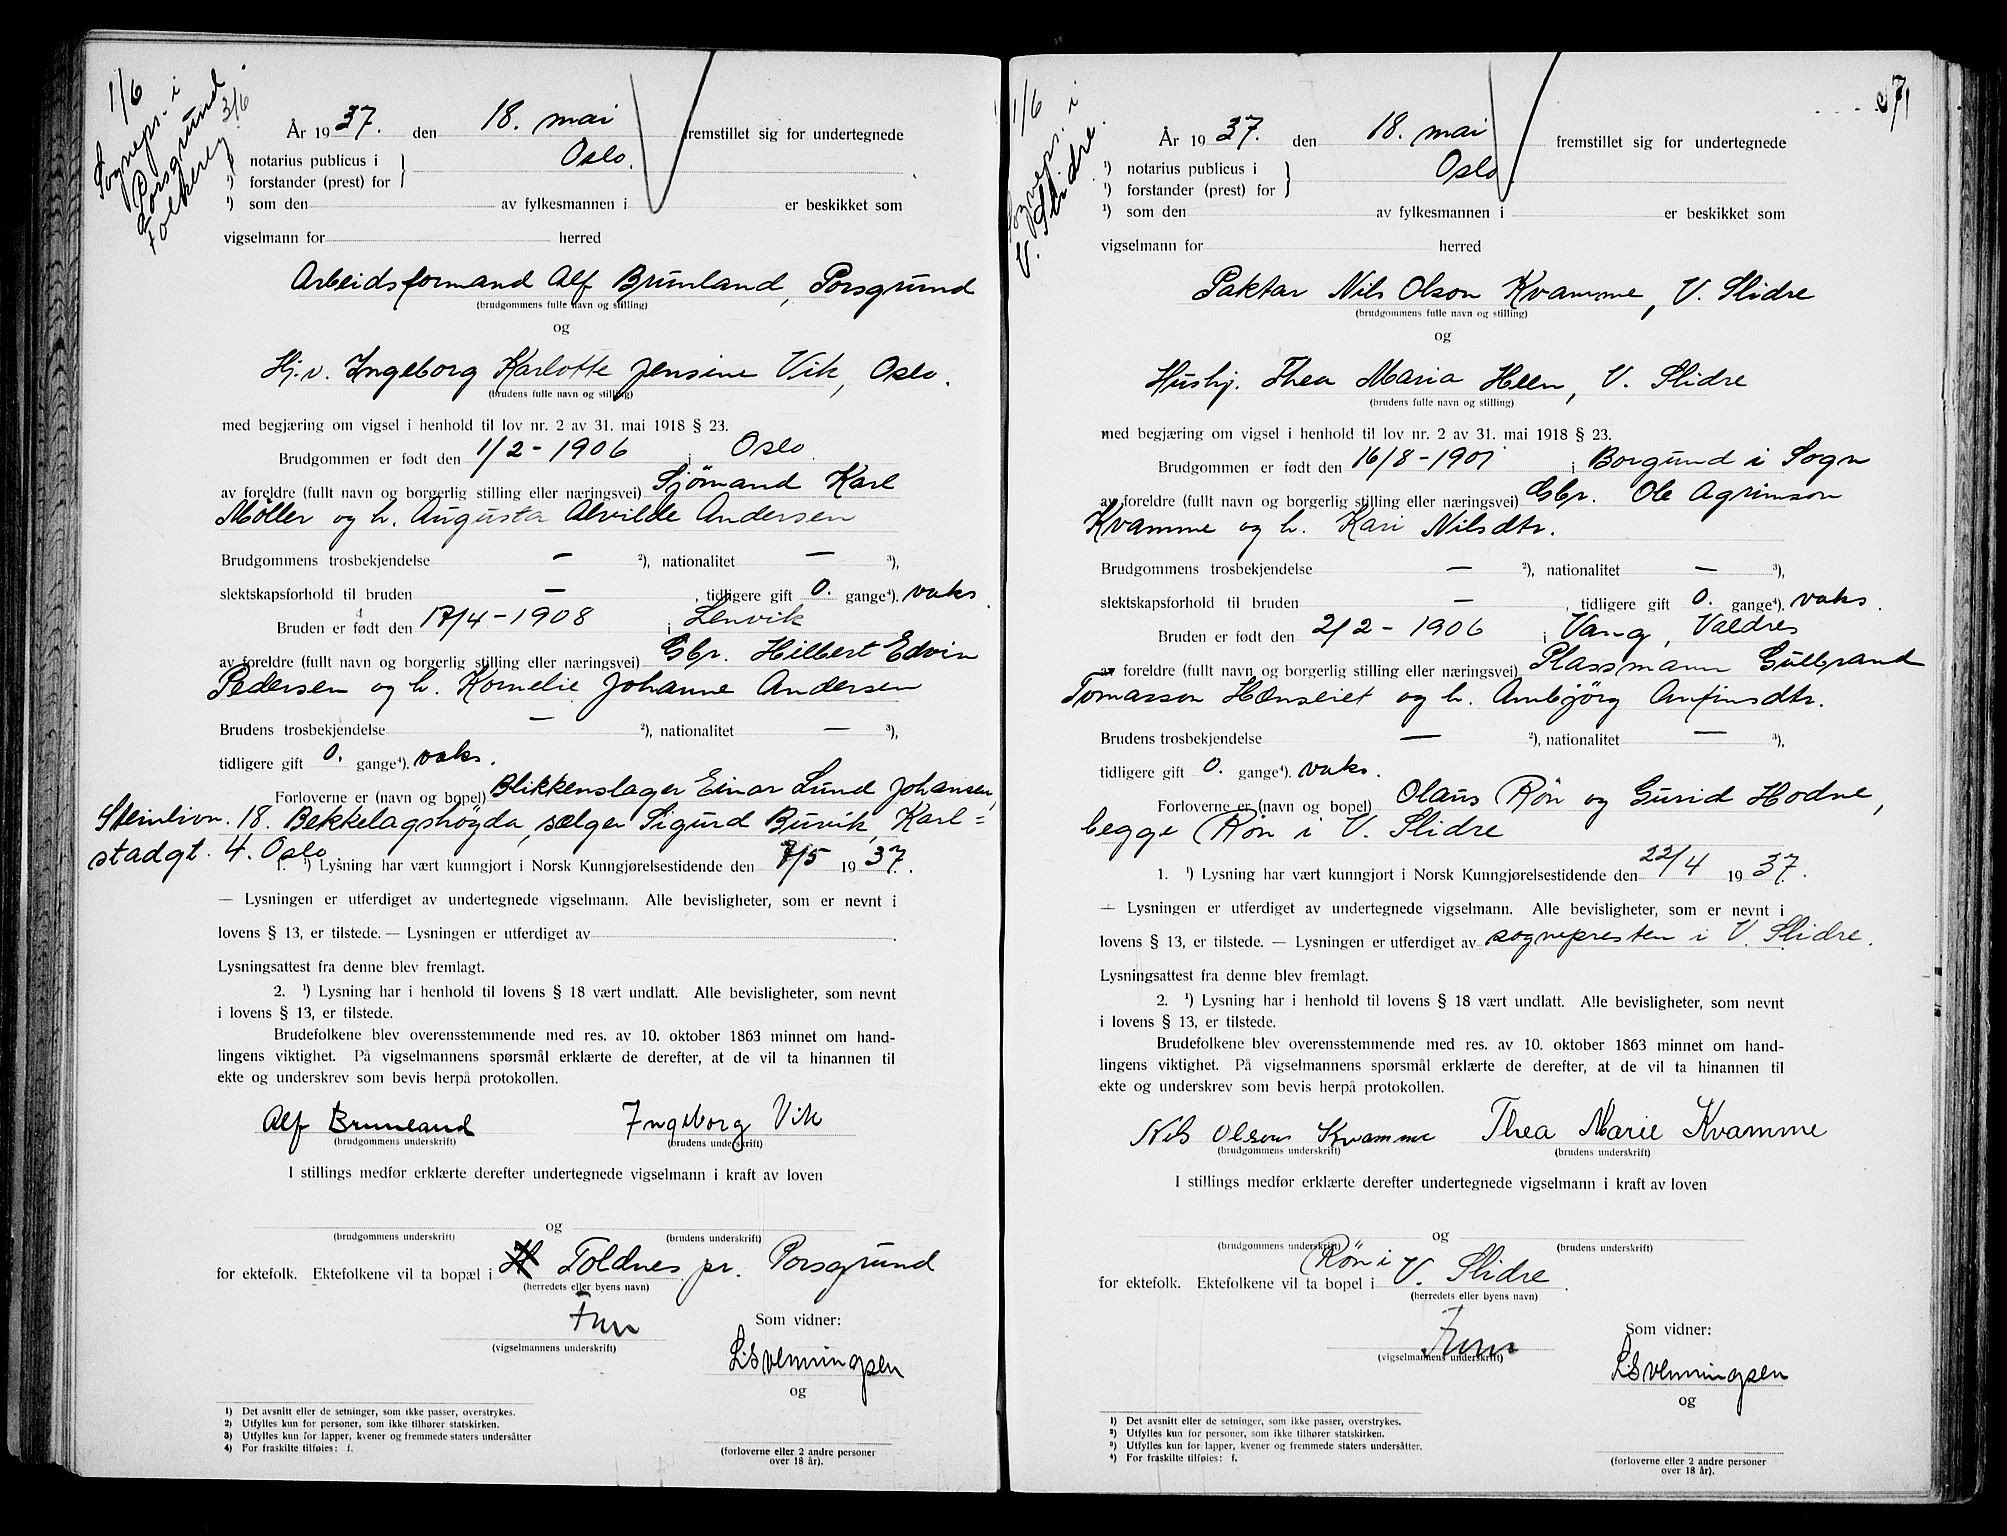 1/6
Sogneps. i
Porsgrund
Folkereg. 3/6
År 1937. den 18. mai fremstillet sig for undertegnede
¹) notarius publicus i } Oslo.
¹) forstander (prest) for
¹) som den av fylkesmannen i er beskikket som
vigselmann for herred
Arbeidsformand Alf Brunland, Porsgrund
(brudgommens fulle navn og stilling)
og
Hj.v. Ingeborg Karlotte Jensine Vik, Oslo.
(brudens fulle navn og stilling)
med begjæring om vigsel i henhold til lov nr. 2 av 31. mai 1918 § 23.
Brudgommen er født den 1/2 - 1906 i Oslo.
av foreldre (fullt navn og borgerlig stilling eller næringsvei) Sjömand Karl
Møller og h. Augusta Alvilde Andersen
Brudgommens trosbekjendelse — ²), nationalitet — ³),
slektskapsforhold til bruden — , tidligere gift 0. gange⁴). vaks.
Bruden er født den 17/4 - 1908 i Lenvik
av foreldre (fullt navn og borgerlig stilling eller næringsvei) Gbr. Hilbert Edvin
Pedersen og h. Kornelie Johanne Andersen
Brudens trosbekjendelse — ²), nationalitet — ³),
tidligere gift 0. gange⁴). vaks.
Forloverne er (navn og bopel) Blikkenslager Einar Lund Johansen,
Stenlivn. 18. Bekkelagshögda, sælger Sigurd Buvik, Karl=
stadgt. 4. Oslo.
1. ¹) Lysning har vært kunngjort i Norsk Kunngjørelsestidende den 7/5 1937.
— Lysningen er utferdiget av undertegnede vigselmann. Alle bevisligheter, som er nevnt i
lovens § 13, er tilstede. — Lysningen er utferdiget av
Lysningsattest fra denne blev fremlagt.
2. ¹) Lysning har i henhold til lovens § 18 vært undlatt. Alle bevisligheter, som nevnt
i lovens § 13, er tilstede.
Brudefolkene blev overensstemmende med res. av 10. oktober 1863 minnet om hand-
lingens viktighet. På vigselmannens spørsmål erklærte de derefter, at de vil ta hinannen til
ekte og underskrev som bevis herpå protokollen.
Alf Brunland Ingeborg Vik
(brudgommens underskrift) (brudens underskrift)
I stillings medfør erklærte derefter undertegnede vigselmann i kraft av loven
og
(brudgommens underskrift) (brudens underskrift)
for ektefolk. Ektefolkene vil ta bopæl i Toldnes pr. Porsgrund
(herredets eller byens navn)
Som vidner:
(vigselmannens underskrift)
L. Svenningsen
og
(forloverne eller 2 andre personer
over 18 år).
1) Det avsnitt eller de setninger, som ikke passer, overstrykes.
2) Utfylles kun for personer, som ikke tilhører statskirken.
3) Utfylles kun for lapper, kvener og fremmede staters undersåtter
4) For fraskilte tilføies: f.
71
1/6
Sogneps. i
V. Slidre.
År 1937. den 18. mai fremstillet sig for undertegnede
¹) notarius publicus i } Oslo
¹) forstander (prest) for
¹) som den av fylkesmannen i er beskikket som
vigselmann for herred
Paktar Nils Olson Kvamme, V. Slidre
(brudgommens fulle navn og stilling)
og
Hushj. Thea Maria Heen, V. Slidre
(brudens fulle navn og stilling)
med begjæring om vigsel i henhold til lov nr. 2 av 31. mai 1918 § 23.
Brudgommen er født den 16/8 - 1901 i Borgund i Sogn
av foreldre (fullt navn og borgerlig stilling eller næringsvei) Gbr. Ole Agrimson
Kvamme og h. Kari Nilsdtr.
Brudgommens trosbekjendelse — ²), nationalitet — ³),
slektskapsforhold til bruden — , tidligere gift 0. gange⁴). vaks.
Bruden er født den 2/2 - 1906 i Vang, Valdres
av foreldre (fullt navn og borgerlig stilling eller næringsvei) Plassmann Gulbrand
Tomasson Hænseiet og h. Ambjörg Anfinsdtr.
Brudens trosbekjendelse — ²), nationalitet — ³),
tidligere gift 0. gange⁴). vaks.
Forloverne er (navn og bopel) Olaus Røn og Gurid Hodne,
begge Røn i V. Slidre
1. ¹) Lysning har vært kunngjort i Norsk Kunngjørelsestidende den 22/4 1937.
— Lysningen er utferdiget av undertegnede vigselmann. Alle bevisligheter, som er nevnt i
lovens § 13, er tilstede. — Lysningen er utferdiget av sognepresten i V. Slidre.
Lysningsattest fra denne blev fremlagt.
2. ¹) Lysning har i henhold til lovens § 18 vært undlatt. Alle bevisligheter, som nevnt
i lovens § 13, er tilstede.
Brudefolkene blev overensstemmende med res. av 10. oktober 1863 minnet om hand-
lingens viktighet. På vigselmannens spørsmål erklærte de derefter, at de vil ta hinannen til
ekte og underskrev som bevis herpå protokollen.
Nils Olson Kvamme Thea Marie Kvamme
(brudgommens underskrift) (brudens underskrift)
I stillings medfør erklærte derefter undertegnede vigselmann i kraft av loven
og
(brudgommens underskrift) (brudens underskrift)
for ektefolk. Ektefolkene vil ta bopel i Røn i V. Slidre.
(herredets eller byens navn)
Som vidner:
(vigselmannens underskrift)
L. Svenningsen
og
(forloverne eller 2 andre personer
over 18 år).
1) Det avsnitt eller de setninger, som ikke passer, overstrykes.
2) Utfylles kun for personer, som ikke tilhører statskirken.
3) Utfylles kun for lapper, kvener og fremmede staters undersåtter.
4) For fraskilte tilføies: f.